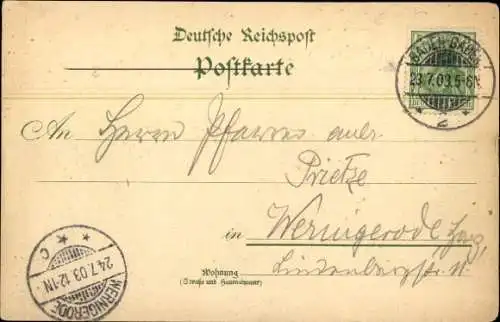 Deutsche Reichspost
Postkarte
BADEN-BADEN
23.7.03.5-6N.
An Herrn Pfarrer
Prietze
in Wernigerode Harz,
Lindenbergstr.
Wohnung
(Straße und Hausnummer)
WERNIGERODE
24.7.03.12-1N.
C